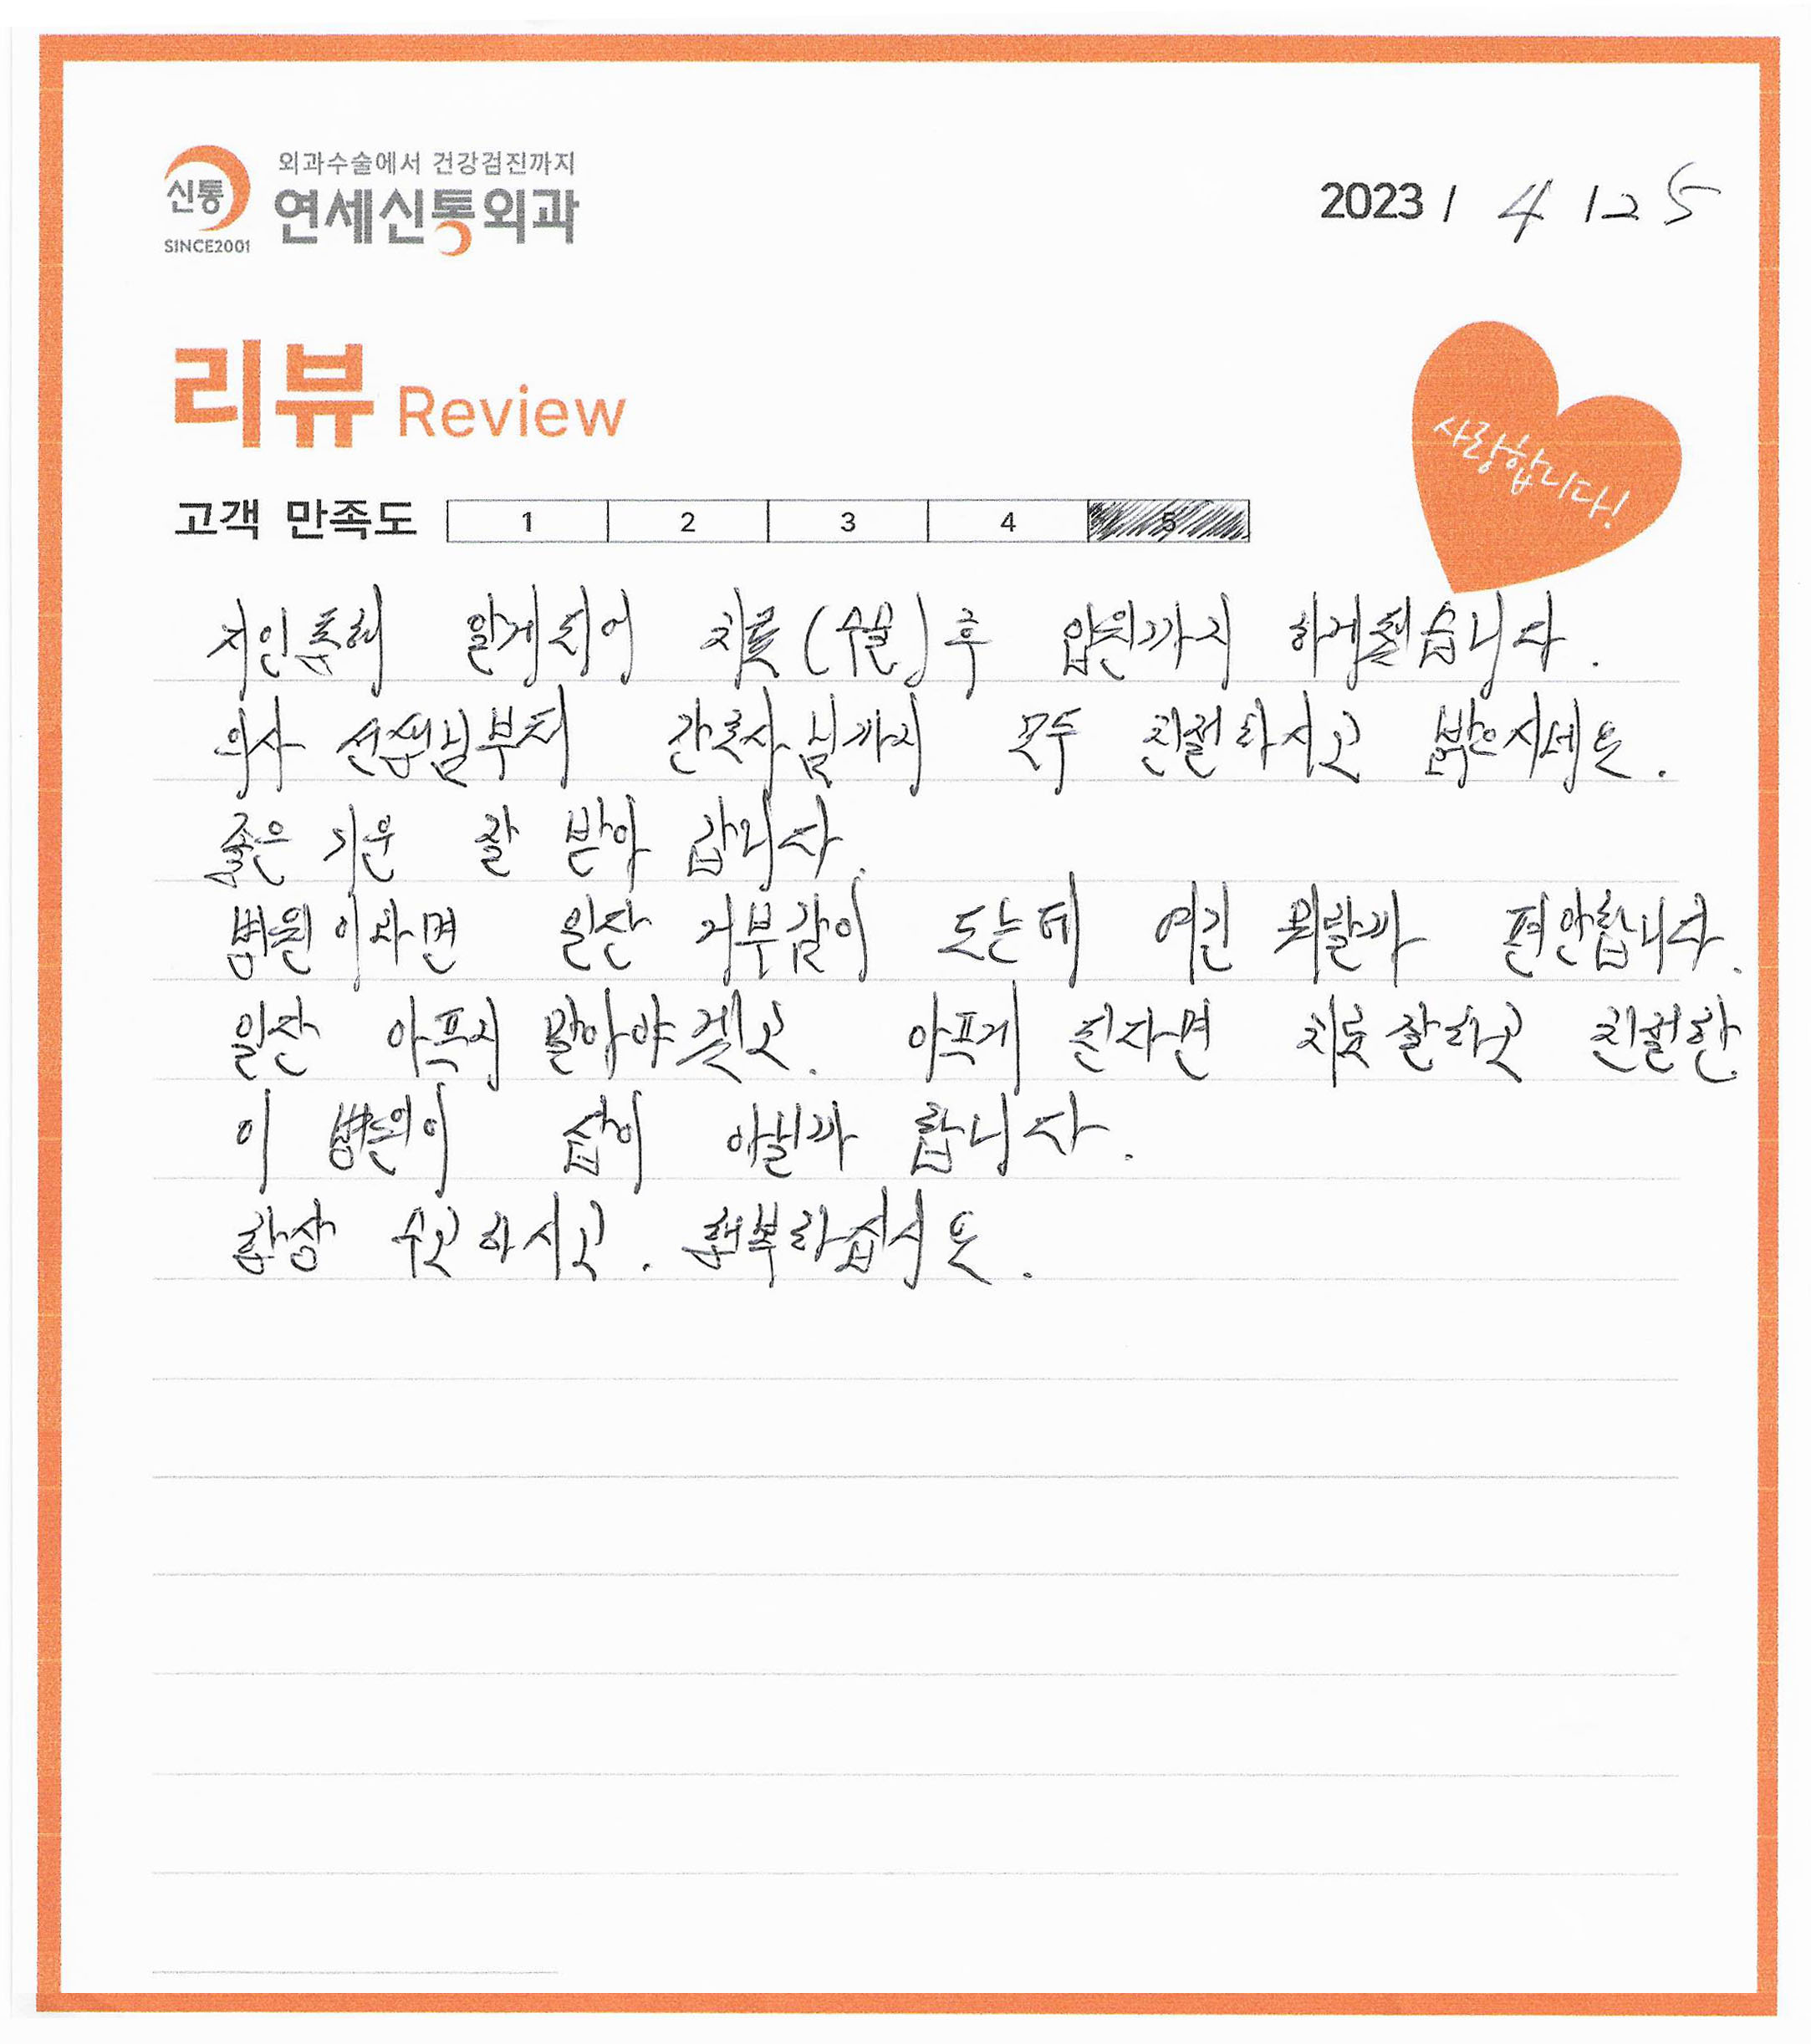 외과수술에서 건강검진까지
신통 연세신통외과
SINCE2001
2023 / 4 / 25
리뷰 Review
사랑합니다!
고객 만족도 1 2 3 4 5
지인통해 알게되어 치료(수술)후 입원까지 하게됐습니다.
의사 선생님부터 간호사님까지 모두 친절하시고 밝으시네요.
좋은 기운 잘 받아 갑니다.
병원이라면 일단 거부감이 도는데 여긴 뭐랄까 편안합니다.
일단 아프지 말아야겠고. 아프게 된다면 치료 잘하고 친절한
이 병원이 답이 아닐까 합니다.
항상 수고하시고. 행복하십시요.